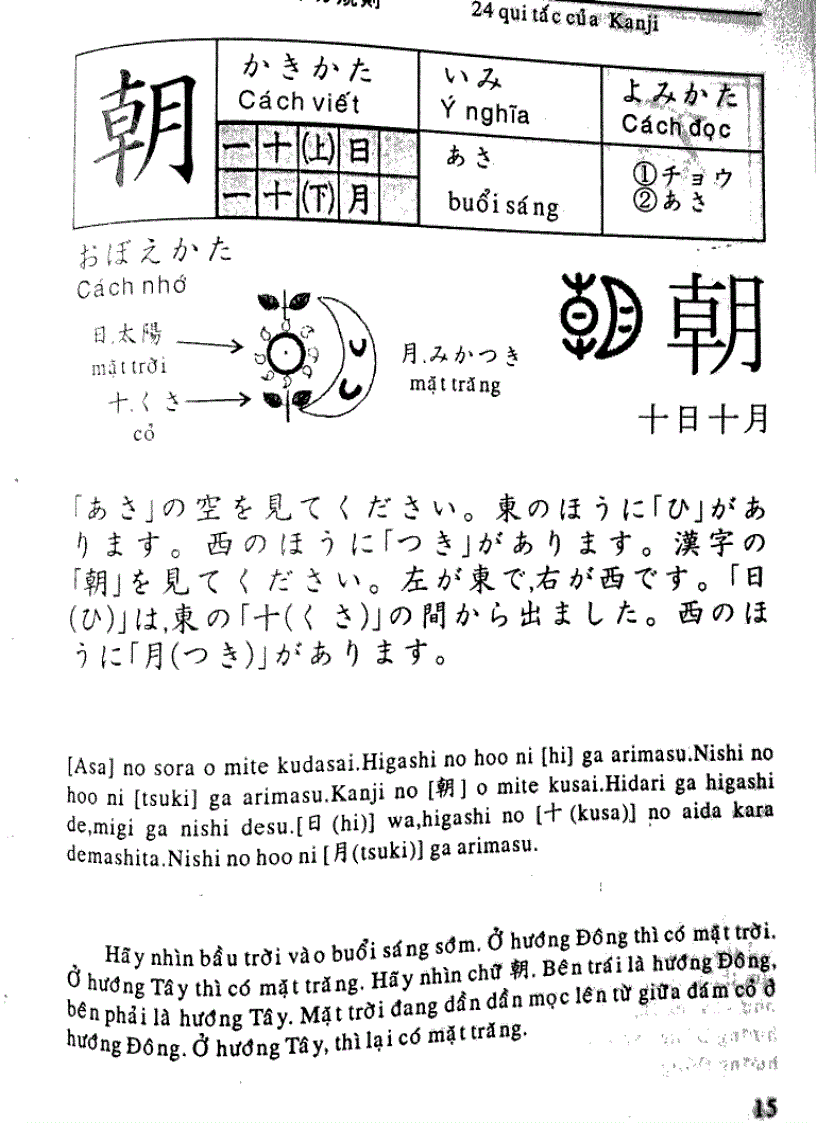 規則
24 qui tắc của Kanji
朝
かきかた
Cách viết
いみ
Ý nghĩa
よみかた
Cách đọc
一 十 (上) 日
一 十 (下) 月
あさ
buổi sáng
①チョウ
②あさ
おぼえかた
Cách nhớ
日.太陽
mặt trời
十.くさ
cỏ
月.みかつき
mặt trăng
朝
十日十月
「あさ」の空を見てください。東のほうに「ひ」があ
ります。西のほうに「つき」があります。漢字の
「朝」を見てください。左が東で,右が西です。「日
(ひ)」は,東の「十(くさ)」の間から出ました。西のほ
うに「月(つき)」があります。
[Asa] no sora o mite kudasai.Higashi no hoo ni [hi] ga arimasu.Nishi no
hoo ni [tsuki] ga arimasu.Kanji no [朝] o mite kusai.Hidari ga higashi
de,migi ga nishi desu.[日 (hi)] wa,higashi no [十 (kusa)] no aida kara
demashita.Nishi no hoo ni [月(tsuki)] ga arimasu.
Hãy nhìn bầu trời vào buổi sáng sớm. Ở hướng Đông thì có mặt trời.
Ở hướng Tây thì có mặt trăng. Hãy nhìn chữ 朝. Bên trái là hướng Đông,
bên phải là hướng Tây. Mặt trời đang dần dần mọc lên từ giữa đám cỏ ở
hướng Đông. Ở hướng Tây, thì lại có mặt trăng.
15